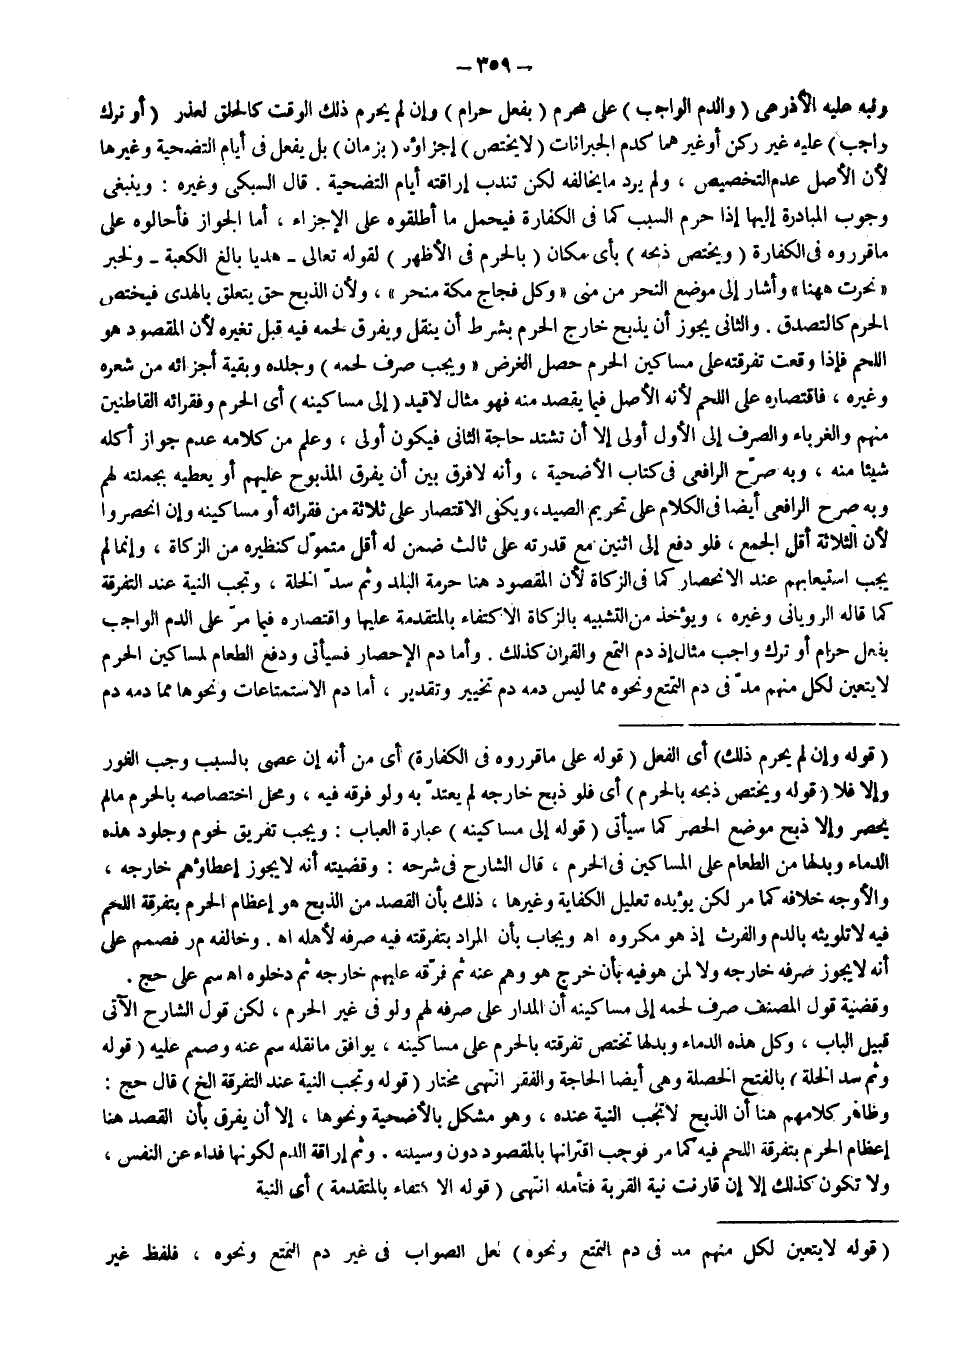 – ٣٥٩ –
ونبه عليه الأذرعى ( والدم الواجب ) على محرم ( بفعل حرام ) وإن لم يحرم ذلك الوقت كالحلق لعذر ( أو ترك
واجب ) عليه غير ركن أوغير هما كدم الجبرانات ( لايختص ) إجزاؤه ( بزمان ) بل يفعل فى أيام التضحية وغيرها
لأن الأصل عدم التخصيص ، ولم يرد مايخالفه لكن تندب إراقته أيام التضحية . قال السبكى وغيره : وينبغى
وجوب المبادرة إليها إذا حرم السبب كما فى الكفارة فيحمل ما أطلقوه على الإجزاء ، أما الجواز فأحالوه على
ماقرروه فى الكفارة ( ويختص ذبحه ) بأى مكان ( بالحرم فى الأظهر ) لقوله تعالى ـ هديا بالغ الكعبة ـ ولخبر
« نحرت ههنا » وأشار إلى موضع النحر من منى « وكل فجاج مكة منحر » ، ولأن الذبح حق يتعلق بالهدى فيختص
الحرم كالتصدق . والثانى يجوز أن يذبح خارج الحرم بشرط أن ينقل ويفرق لحمه فيه قبل تغيره لأن المقصود هو
اللحم فإذا وقعت تفرقته على مساكين الحرم حصل الغرض « ويجب صرف لحمه ) وجلده وبقية أجزائه من شعره
وغيره ، فاقتصاره على اللحم لأنه الأصل فيما يقصد منه فهو مثال لاقيد ( إلى مساكينه ) أى الحرم وفقرائه القاطنين
منهم والغرباء والصرف إلى الأول أولى إلا أن تشتد حاجة الثانى فيكون أولى ، وعلم من كلامه عدم جواز أكله
شيئا منه ، وبه صرّح الرافعى فى كتاب الأضحية ، وأنه لافرق بين أن يفرق المذبوح عليهم أو يعطيه بجملته لهم
وبه صرح الرافعى أيضا فى الكلام على تحريم الصيد، ويكفى الاقتصار على ثلاثة من فقرائه أو مساكينه وإن انحصروا
لأن الثلاثة أقل الجمع ، فلو دفع إلى اثنين مع قدرته على ثالث ضمن له أقل متموّل كنظيره من الزكاة ، وإنما لم
يجب استيعابهم عند الانحصار كما فى الزكاة لأن المقصود هنا حرمة البلد وثم سدّ الخلة ، وتجب النية عند التفرقة
كما قاله الرويانى وغيره ، ويؤخذ من التشبيه بالزكاة الاكتفاء بالمتقدمة عليها واقتصاره فيما مرّ على الدم الواجب
بفعل حرام أو ترك واجب مثال إذ دم التمتع والقران كذلك . وأما دم الإحصار فسيأتى ودفع الطعام لمساكين الحرم
لايتعين لكل منهم مدّ فى دم التمتع ونحوه مما ليس دمه دم تخيير وتقدير ، أما دم الاستمتاعات ونحوها مما دمه دم
( قوله وإن لم يحرم ذلك ) أى الفعل ( قوله على ماقرروه فى الكفارة ) أى من أنه إن عصى بالسبب وجب الفور
وإلا فلا ( قوله ويختص ذبحه بالحرم ) أى فلو ذبح خارجه لم يعتدّ به ولو فرقه فيه ، ومحل اختصاصه بالحرم مالم
يحصر وإلا ذبح موضع الحصر كما سيأتى ( قوله إلى مساكينه ) عبارة العباب : ويجب تفريق لحوم وجلود هذه
الدماء وبدلها من الطعام على المساكين فى الحرم ، قال الشارح فى شرحه : وقضيته أنه لايجوز إعطاؤهم خارجه ،
والأوجه خلافه كما مر لكن يؤيده تعليل الكفاية وغيرها ، ذلك بأن القصد من الذبح هو إعظام الحرم بتفرقة اللحم
فيه لاتلويثه بالدم والفرث إذ هو مكروه اه ويجاب بأن المراد بتفرقته فيه صرفه لأهله اه . وخالفه مر فصمم على
أنه لايجوز صرفه خارجه ولا لمن هو فيه بأن خرج هو وهم عنه ثم فرّقه عليهم خارجه ثم دخلوه اه سم على حج .
وقضية قول المصنف صرف لحمه إلى مساكينه أن المدار على صرفه لهم ولو فى غير الحرم ، لكن قول الشارح الآتى
قبيل الباب ، وكل هذه الدماء وبدلها تختص تفرقته بالحرم على مساكينه ، يوافق مانقله سم عنه وصمم عليه ( قوله
وثم سد الخلة ) بالفتح الخصلة وهى أيضا الحاجة والفقر انتهى مختار ( قوله وتجب النية عند التفرقة الخ ) قال حج :
وظاهر كلامهم هنا أن الذبح لاتجب النية عنده ، وهو مشكل بالأضحية ونحوها ، إلا أن يفرق بأن القصد هنا
إعظام الحرم بتفرقة اللحم فيه كما مر فوجب اقترانها بالمقصود دون وسيلته . وثم إراقة الدم لكونها فداء عن النفس ،
ولا تكون كذلك إلا إن قارنت نية القربة فتأمله انتهى ( قوله الاكتفاء بالمتقدمة ) أى النية
( قوله لايتعين لكل منهم مد فى دم التمتع ونحوه ) لعل الصواب فى غير دم التمتع ونحوه ، فلفظ غير